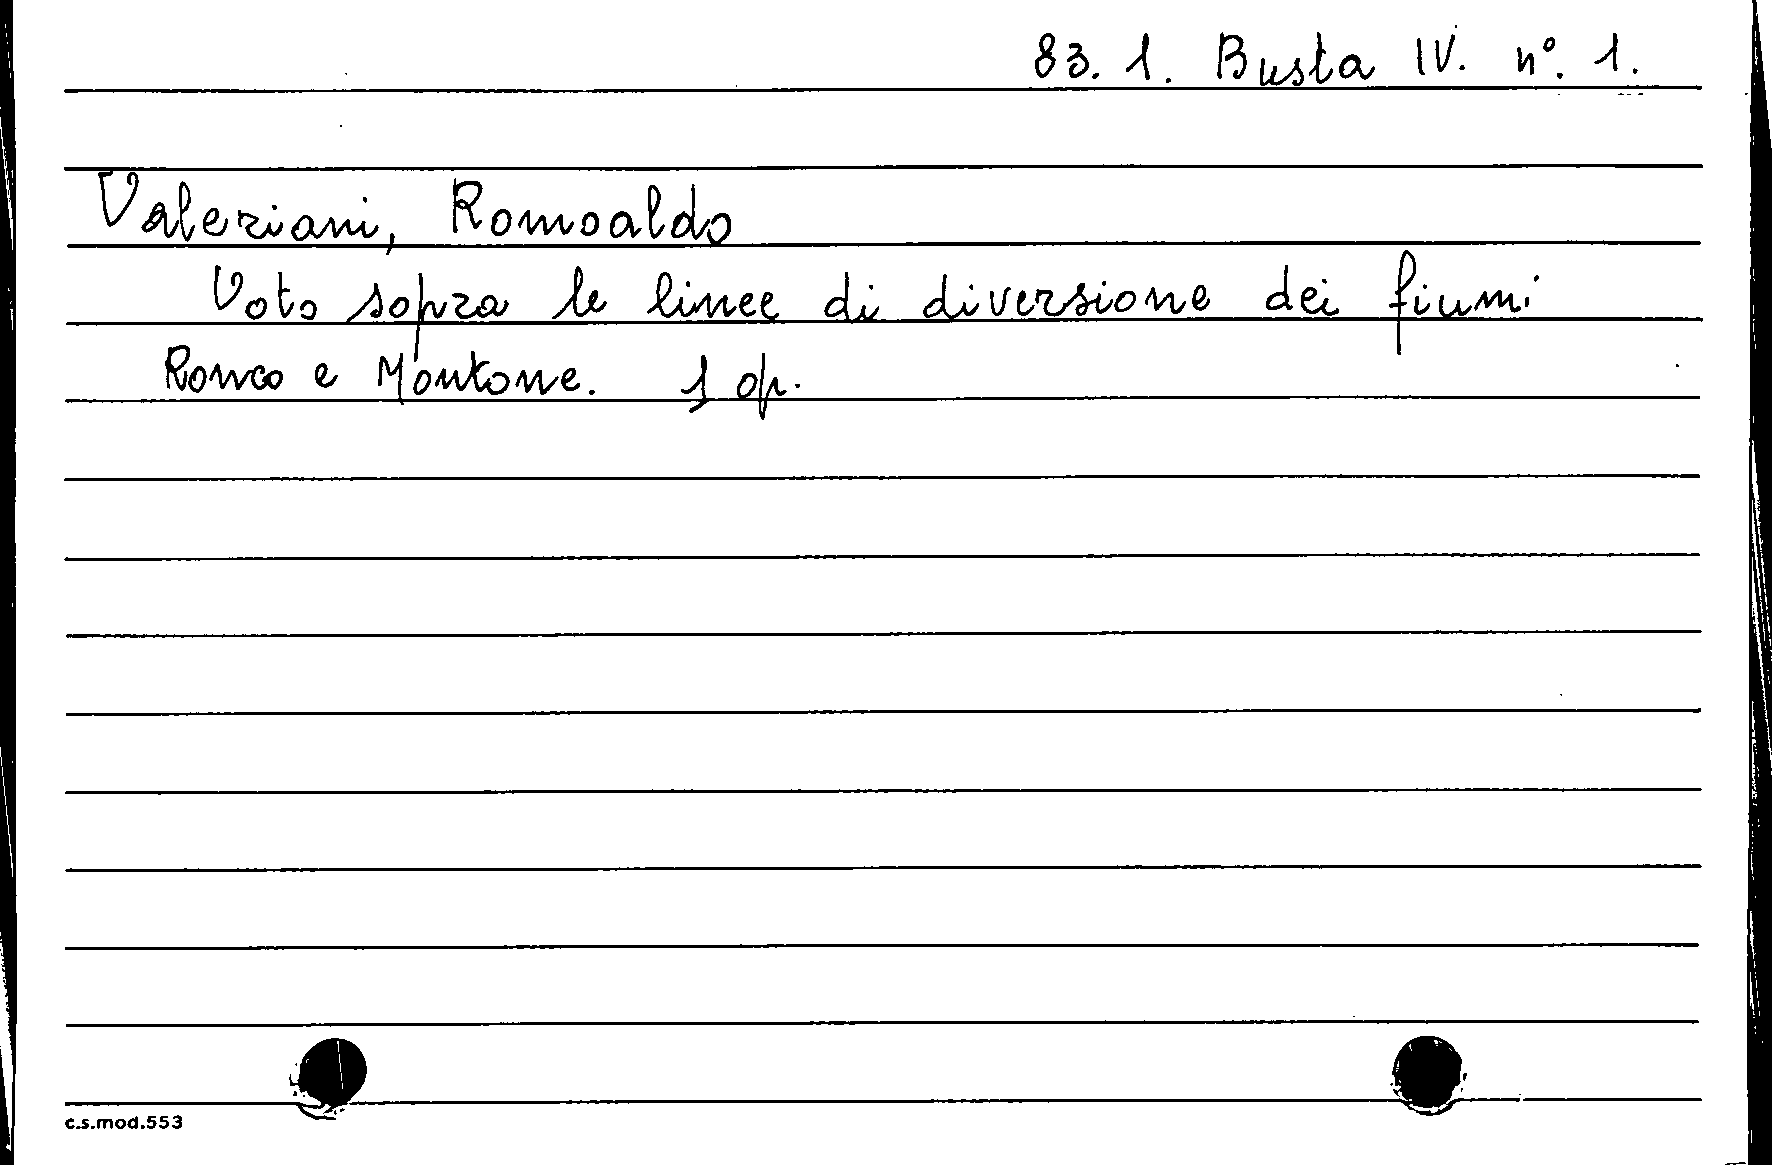 83. 1. Busta IV. n°. 1.
Valeriani, Romoaldo
Voto sopra le linee di diversione dei fiumi
Ronco e Montone. 1 op.
c.s.mod.553